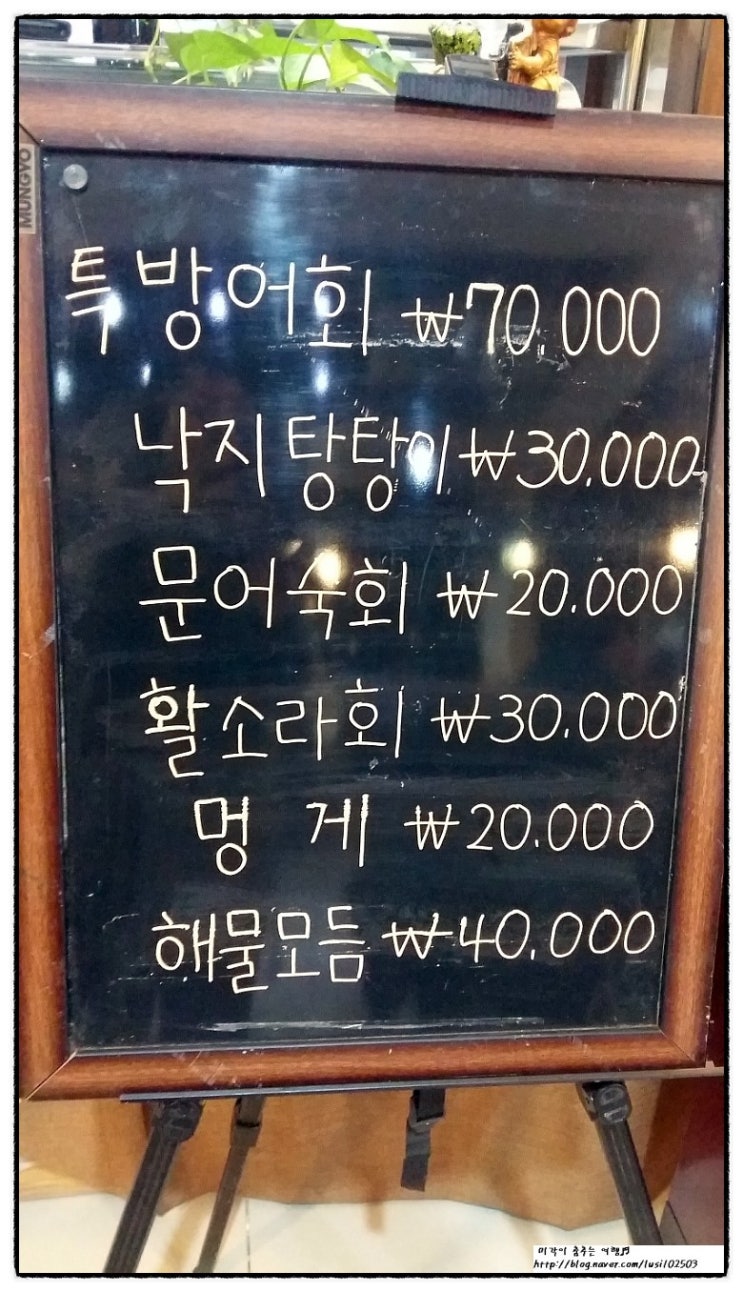 MUNGYO
특방어회 ₩70.000
낙지탕탕이 ₩30.000
문어숙회 ₩20.000
활소라회 ₩30.000
멍 게 ₩20.000
해물모듬 ₩40.000
미각이 춤추는 여행♬
http://blog.naver.com/lusil02503